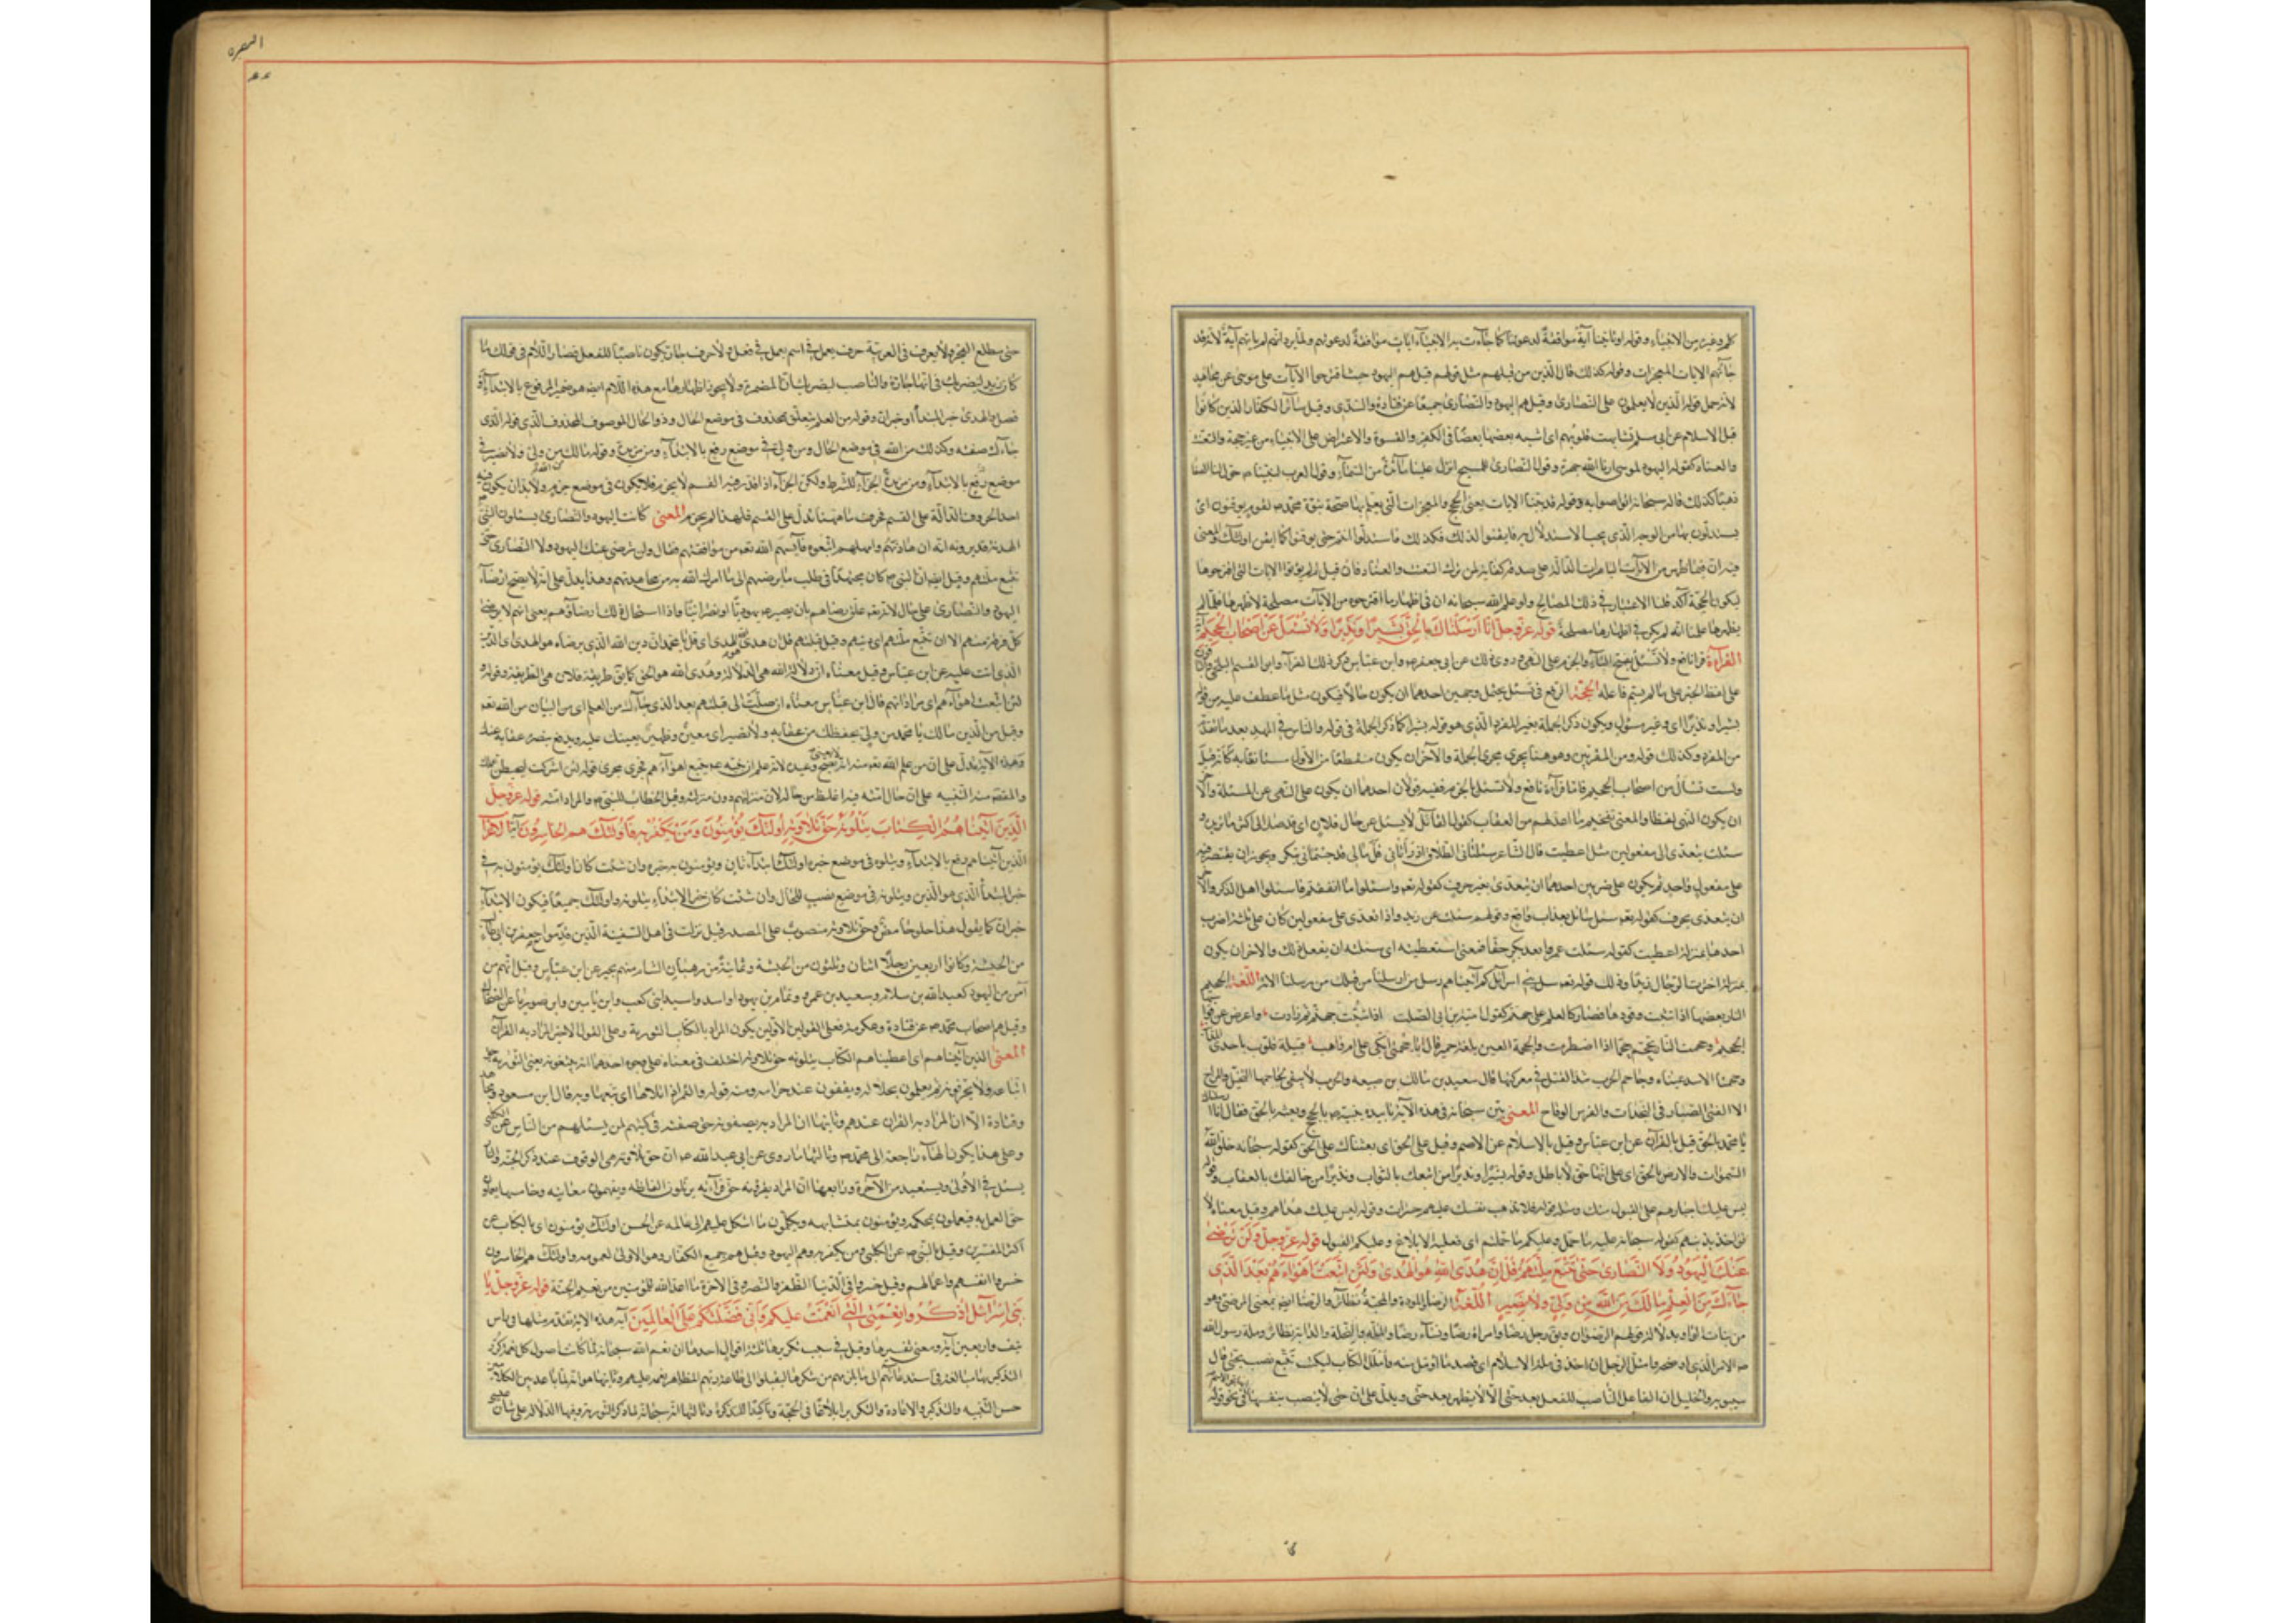 كلم وغيره من الانبياء وقوله او تاتينا آية موافقة لدعوتنا كما جاءت بها الانبياء ايات موافقة لدعوتهم ولم يرد انهم لم ياتهم آية لانه قد
جاءتهم الايات المعجزات وقوله كذلك قال الذين من قبلهم مثل قولهم قيل هم اليهود حيث اقترحوا الآيات على موسى عن مجاهد
لانه حمل قوله الذين لا يعلمون على النصارى وقيل هم اليهود والنصارى جميعا عن قتادة والسدى وقيل سائر الكفار الذين كانوا
قبل الاسلام عن ابى مسلم تشابهت قلوبهم اى اشبه بعضها بعضا فى الكفر والقسوة والاعتراض على الانبياء من غير حجة والتعنت
والعناد كقول اليهود لموسى ارنا الله جهرة وقول النصارى للمسيح انزل علينا مائدة من السماء وقول العرب لنبينا حول لنا الصفا
ذهبا كذلك قال سبحانه اتواصوا به وقوله قد بينا الايات يعنى الحجج والمعجزات التى يعلم بها صحة نبوة محمد لقوم يوقنون اى
يستدلون بها من الوجه الذى يجب الاستدلال به فايقنوا لذلك فكذلك فاستدلوا انتم حتى توقنوا كما ايقن اولئك والمعنى
فيه ان فيما ظهر من الآيات الباهرات الدالة على صدقه كفاية لمن ترك التعنت والعناد فان قيل لم لم يؤتوا الايات التى اقترحوها
ليكون الحجة آكد قلنا الاعتبار فى ذلك المصالح ولو علم الله سبحانه ان فى اظهار ما اقترحوه من الآيات مصلحة لاظهرها فلما لم
يظهرها علمنا انه لم يكن فى اظهارها مصلحة قوله عز وجل انا ارسلناك بالحق بشيرا ونذيرا ولا تسئل عن اصحاب الجحيم آية
القراءة قرا نافع ولا تسئل بفتح التاء والجزم على النهى وروى ذلك عن ابى جعفر وابن عباس ذكر ذلك الفراء وابو القسم البلخى والباقون
على لفظ الخبر على ما لم يسم فاعله الحجة الرفع فى تسئل يحتمل وجهين احدهما ان يكون حالا فيكون مثل ما عطف عليه من قوله
بشيرا ونذيرا اى وغير مسئول ويكون ذكر الجملة بعد المفرد الذى هو قوله بشيرا كما ذكر الجملة فى قوله والناس فى المهد بعد ما تقدم
من المفرد وكذلك قوله ومن المقربين وهو هنا يجرى مجرى الجملة والآخر ان يكون منقطعا من الاول مستانفا به كانه قيل
ولست تسأل عن اصحاب الجحيم فاما قراءة نافع ولا تسئل بالجزم ففيه قولان احدهما ان يكون على النهى عن المسئلة والاخر
ان يكون النهى لفظا والمعنى تفخيم ما اعد لهم من العقاب كقول القائل لا تسئل عن حال فلان اى قد صار الى اكثر مما تريد و
سئلت يتعدى الى مفعولين مثل اعطيت قال الشاعر سئلتانى الطلاق اذ راتانى قل مالى قد جئتمانى بنكر ويجوز ان يقتصر فيه
على مفعول واحد ثم يكون على ضربين احدهما ان يتعدى بغير حرف كقوله تعالى واسئلوا ما انفقتم فاسئلوا اهل الذكر والاخر
ان يتعدى بحرف كقوله تعالى سئل سائل بعذاب واقع وقولهم سئلت عن زيد واذا تعدى على مفعولين كان على ثلثة اضرب
احدها بمنزلة اعطيت كقوله سئلت عمرا بعد بكر حقا فمعنى استعطيته اى سئلته ان يفعل ذلك والاخر ان يكون
بمنزلة اخترت الرجال زيدا وذلك قوله تعالى سل بنى اسرائيل كم آتيناهم وسل من ارسلنا من قبلك من رسلنا الاية اللغة الجحيم
النار بعينها اذا شب وقودها فصار كالعلم على جهنم كقول امية بن ابى الصلت اذا شبت جهنم ثم زادت واعرض عن قوابسها
الجحيم وجحمت النار تجحم جحما اذا اضطرمت والجحمة العين بلغة حمير قال ايا جحمتى بكى على ام واهب قتيلة قلوب باحدى المذانب
وجحمتا الاسد عيناه وجاحم الحرب شدة القتل فى معركتها قال سعيد بن مالك بن ضبيعة والحرب لا يبقى لجاحمها التخيل والمراح
الا الفتى الصبار فى النجدات والفرس الوقاح المعنى بين سبحانه فى هذه الآية تاييده نبيه بالحجج وبعثه بالحق فقال انا ارسلناك
يا محمد بالحق قيل بالقرآن عن ابن عباس وقيل بالاسلام عن الاصم وقيل على الحق اى بعثناك على الحق كقوله سبحانه خلق الله
السموات والارض بالحق اى على انهما حق لا باطل وقوله بشيرا ونذيرا من اتبعك بالثواب ونذيرا من خالفك بالعقاب وقوله
ليس عليك اجبارهم على القبول منك ومثله قوله فلا تذهب نفسك عليهم حسرات وقوله ليس عليك هداهم وقيل معناه لا
تؤاخذ بذنبهم كقوله سبحانه عليه ما حمل وعليكم ما حملتم اى فعليه الابلاغ وعليكم القبول قوله عز وجل ولن ترضى
عنك اليهود ولا النصارى حتى تتبع ملتهم قل ان هدى الله هو الهدى ولئن اتبعت اهواءهم بعد الذى
جاءك من العلم مالك من الله من ولى ولا نصير اللغة الرضا والمودة والمحبة نظائر والرضا ايضا بمعنى المرضى وهو
من بنات الواو بدلالة قولهم الرضوان ويق رجل رضا وامراة رضا ونساء رضا والملة والنحلة والديانة نظائر وملة رسول الله
الامر الذى اوضحه وامتل الرجل اذا اخذ فى ملة الاسلام اى قصد ما امل منه تتبع نصب بحتى قال
سيبويه والخليل ان الفاعل الناصب للفعل بعد حتى ان الا انه لا يظهر بعد حتى ويدل على ان حتى لا ينصب بنفسها فى نحو قوله
البقره
حتى مطلع الفجر ولا يعرف فى العربية حرف يعمل فى اسم يعمل فى فعل ولا حرف جار يكون ناصبا للفعل فصار اللام فى قولك ما
كان زيد ليضربك فى انها جارة والناصب ليضربك ان المضمرة ولا يجوز اظهارها مع هذه اللام ايضا هو ضمير المرفوع بالابتداء او
فصل والهدى خبر المبتدأ او خبر ان وقوله من العلم يتعلق بمحذوف فى موضع الحال وذو الحال الموصوف المحذوف الذى قوله الذى
جاءك صفته وكذلك من الله فى موضع الحال ومن ولى فى موضع رفع بالابتداء ومن مزيدة وقوله مالك من الله من ولى ولا نصير فى
موضع رفع بالابتداء ومن مزيدة الجزاء للشرط ولكن الجزاء اذا قدر فيه القسم لا يجزم فلا يكون فى موضع جزم ولا بد ان يكون فيه
احد الحروف الدالة على القسم فحرف ما ههنا تدل على القسم فلهذا لم يجزم المعنى كانت اليهود والنصارى يسئلون النبى
الهدنة ويرونه انه ان هادنهم وامهلهم اتبعوه فآيسهم الله تعالى من موافقتهم فقال ولن ترضى عنك اليهود ولا النصارى حتى
تتبع ملتهم وقيل ايضا ان النبى كان مجتهدا فى طلب ما يرضيهم الى ما امرك الله به من مجاهدتهم وهذا يدل على انه لا يصح ارضاء
اليهود والنصارى على حال لانه تعالى علق رضاهم بان يصير يهوديا او نصرانيا واذا استحال ذلك رضاؤهم يعنى انهم لا يرضى
كل فرقة منهم الا ان تتبع ملتهم اى دينهم وقيل قبلتهم قل ان هدى الله هو الهدى اى قل يا محمد ان دين الله الذى يرضاه هو الهدى اى الدين
الذى انت عليه عن ابن عباس وقيل معناه ان دلالة الله هى الدلالة وهدى الله هو الحق كما يق طريقة فلان هى الطريقة وقوله
لئن اتبعت اهواءهم اى مراداتهم قال ابن عباس معناه ان صليت الى قبلتهم بعد الذى جاءك من العلم اى من البيان من الله تعالى
وقيل من الدين مالك يا محمد من ولى يحفظك من عقابه ولا نصير اى معين وظهير يعينك عليه ويدفع بنصره عقابه عنك
وهذه الآية تدل على ان من علم الله تعالى منه انه لا يعصى يصح وعيده لانه علم ان نبيه لا يتبع اهواءهم فجرى مجرى قوله لئن اشركت ليحبطن عملك
والمقصد منه التنبيه على ان حال امته فيه اغلظ من حاله لان منزلتهم دون منزلته وقيل الخطاب للنبى والمراد امته قوله عز وجل
الذين آتيناهم الكتاب يتلونه حق تلاوته اولئك يؤمنون به ومن يكفر به فاولئك هم الخاسرون آية الاعراب
الذين آتيناهم رفع بالابتداء ويتلونه فى موضع خبره اولئك ابتداء ثان ويؤمنون به خبره وان شئت كان اولئك يؤمنون به فى
خبر المبتدأ الذى هو الذين ويتلونه فى موضع نصب للحال وان شئت كان خبر الابتداء يتلونه واولئك جميعا فيكون الابتداء
خبران كما يقول هذا حلو حامض وحق تلاوته منصوب على المصدر قيل نزلت فى اهل السفينة الذين قدموا مع جعفر بن ابى طالب
من الحبشة وكانوا اربعين رجلا اثنان وثلثون من الحبشة وثمانية من رهبان الشام منهم بحيرا عن ابن عباس وقيل انهم من
آمن من اليهود كعبد الله بن سلام وسعيد بن عمرو وتمام بن يهودا واسد واسيد ابنى كعب وابن يامين وابن صوريا عن الضحاك
وقيل هم اصحاب محمد عن قتادة وعكرمة فعلى القولين الاولين يكون المراد بالكتاب التورية وعلى القول الاخير المراد به القرآن
المعنى الذين آتيناهم اى اعطيناهم الكتاب يتلونه حق تلاوته اختلف فى معناه على وجوه احدها انه يتبعونه يعنى التورية حق
اتباعه ولا يحرفونه ثم يعملون بحلاله ويقفون عند حرامه ومنه قوله والقمر اذا تلاها اى تبعها وبه قال ابن مسعود ومجاهد
وقتادة الا ان المراد به القران عندهم وثانيها ان المراد به يصفونه حق صفته فى كتبهم لمن يسئلهم من الناس عن الكلبى
وعلى هذا يكون الهاء راجعة الى محمد وثالثها ما روى عن ابى عبد الله ان حق تلاوته هى الوقوف عند ذكر الجنة والنار
يسئل فى الاولى ويستعيذ من الآخرة ورابعها ان المراد يقرؤنه حق قراءته يرتلون الفاظه ويفهمون معانيه وخامسها يعملون
حق العمل به فيعملون بمحكمه ويؤمنون بمتشابهه ويكلون ما اشكل عليهم الى عالمه عن الحسن اولئك يؤمنون اى بالكتاب عن
اكثر المفسرين وقيل بالنبى عن الكلبى ومن يكفر به وهم اليهود وقيل هم جميع الكفار وهو الاولى لعمومه واولئك هم الخاسرون
خسروا انفسهم واعمالهم وقيل خسروا فى الدنيا الظفر والنصر وفى الاخرة ما اعد الله للمؤمنين من نعيم الجنة قوله عز وجل يا
بنى اسرائيل اذكروا نعمتى التى انعمت عليكم وانى فضلتكم على العالمين آية هذه الاية تقدم مثلها فى راس
نيف واربعين آية ومعنى تفسيرها وقيل فى سبب تكريرها ثلثة اقوال احدها ان نعم الله سبحانه لما كانت اصول كل نعمة كرر
التذكير بها مبالغة فى استدعائهم الى ما يلزمهم من شكرها ليقبلوا الى طاعة ربهم المظاهر نعمه عليهم وثانيها هو انه لما باعد بين الكلامين
حسن التنبيه والتذكير والافادة والتكرير ابلاغا فى الحجة وتاكيدا للتذكرة وثالثها انه سبحانه لما ذكر التورية وفيها الدلالة على شان عيسى